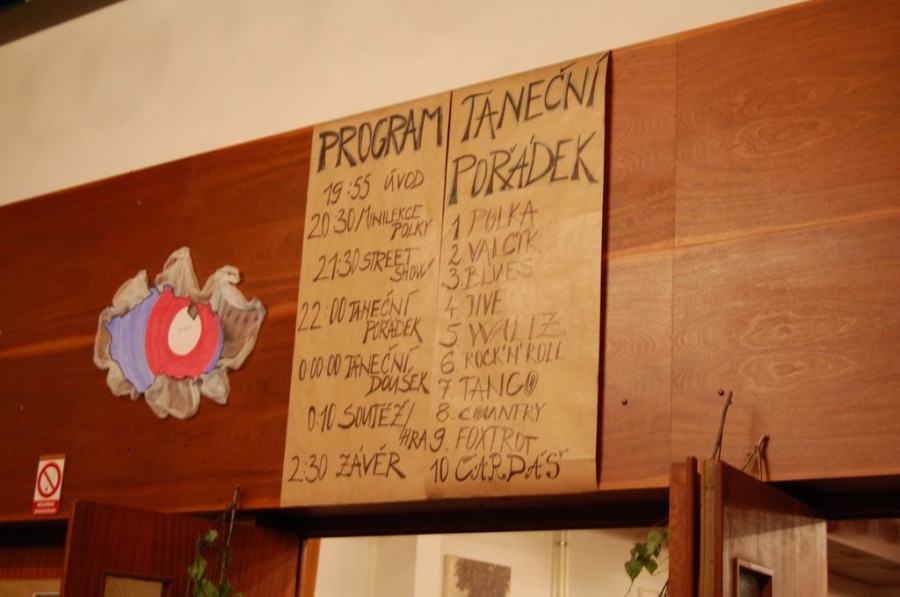 PROGRAM
19:55 ÚVOD
20:30 MINILEKCE
POLKY
21:30 STREET
SHOW
22:00 TANEČNÍ
POŘÁDEK
0:00:00 TANEČNÍ
DOUŠEK
0:10 SOUTĚŽ/
HRA
2:30 ZÁVĚR
TANEČNÍ
POŘÁDEK
1. POLKA
2. VALČÍK
3. BLUES
4. JIVE
5. WALTZ
6. ROCK'N'ROLL
7. TANGO
8. COUNTRY
9. FOXTROT
10 ČARDÁŠ